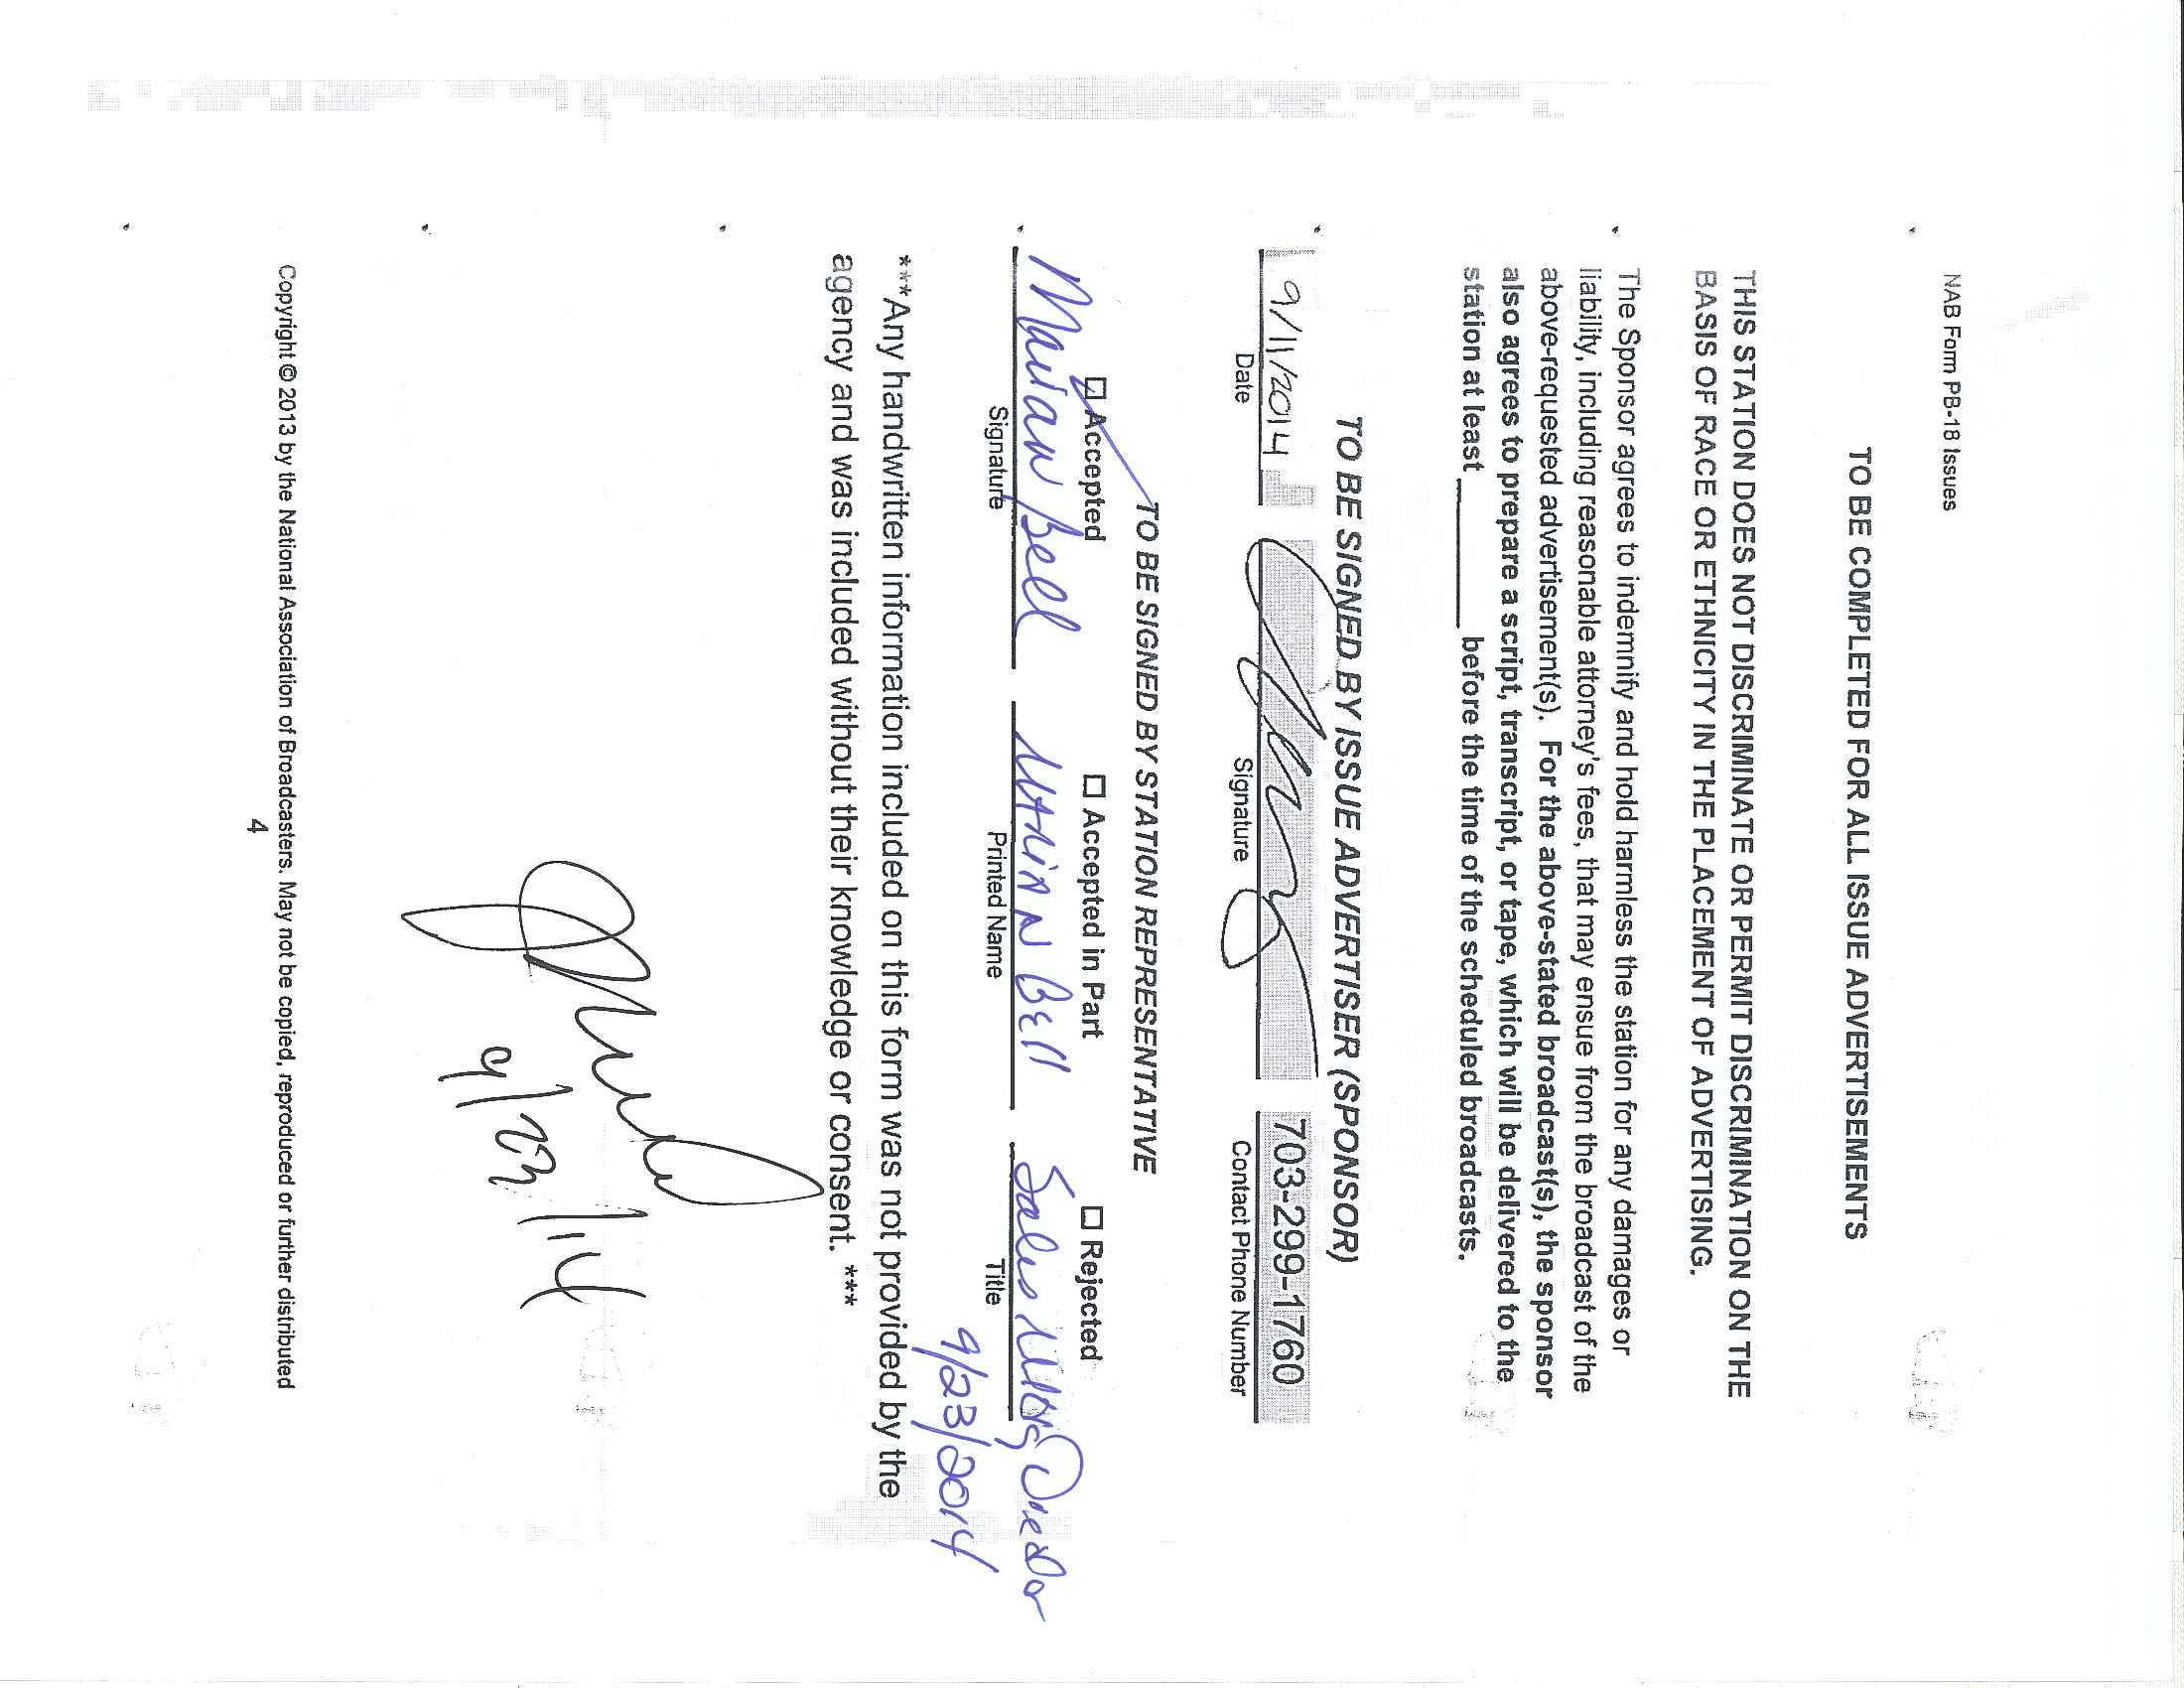 NAB Form PB-18 Issues
TO BE COMPLETED FOR ALL ISSUE ADVERTISEMENTS
THIS STATION DOES NOT DISCRIMINATE OR PERMIT DISCRIMINATION ON THE
BASIS OF RACE OR ETHNICITY IN THE PLACEMENT OF ADVERTISING.
The Sponsor agrees to indemnify and hold harmless the station for any damages or
liability, including reasonable attorney's fees, that may ensue from the broadcast of the
above-requested advertisement(s). For the above-stated broadcast(s), the sponsor
also agrees to prepare a script, transcript, or tape, which will be delivered to the
station at least ______ before the time of the scheduled broadcasts.
TO BE SIGNED BY ISSUE ADVERTISER (SPONSOR)
9/11/2014 703-299-1760
Date Signature Contact Phone Number
TO BE SIGNED BY STATION REPRESENTATIVE
☑ Accepted ☐ Accepted in Part ☐ Rejected
Marian Bell MARIAN BEll Sales
Signature Printed Name Title
9/23/2014
***Any handwritten information included on this form was not provided by the
agency and was included without their knowledge or consent. ***
9/23/14
Copyright © 2013 by the National Association of Broadcasters. May not be copied, reproduced or further distributed
4